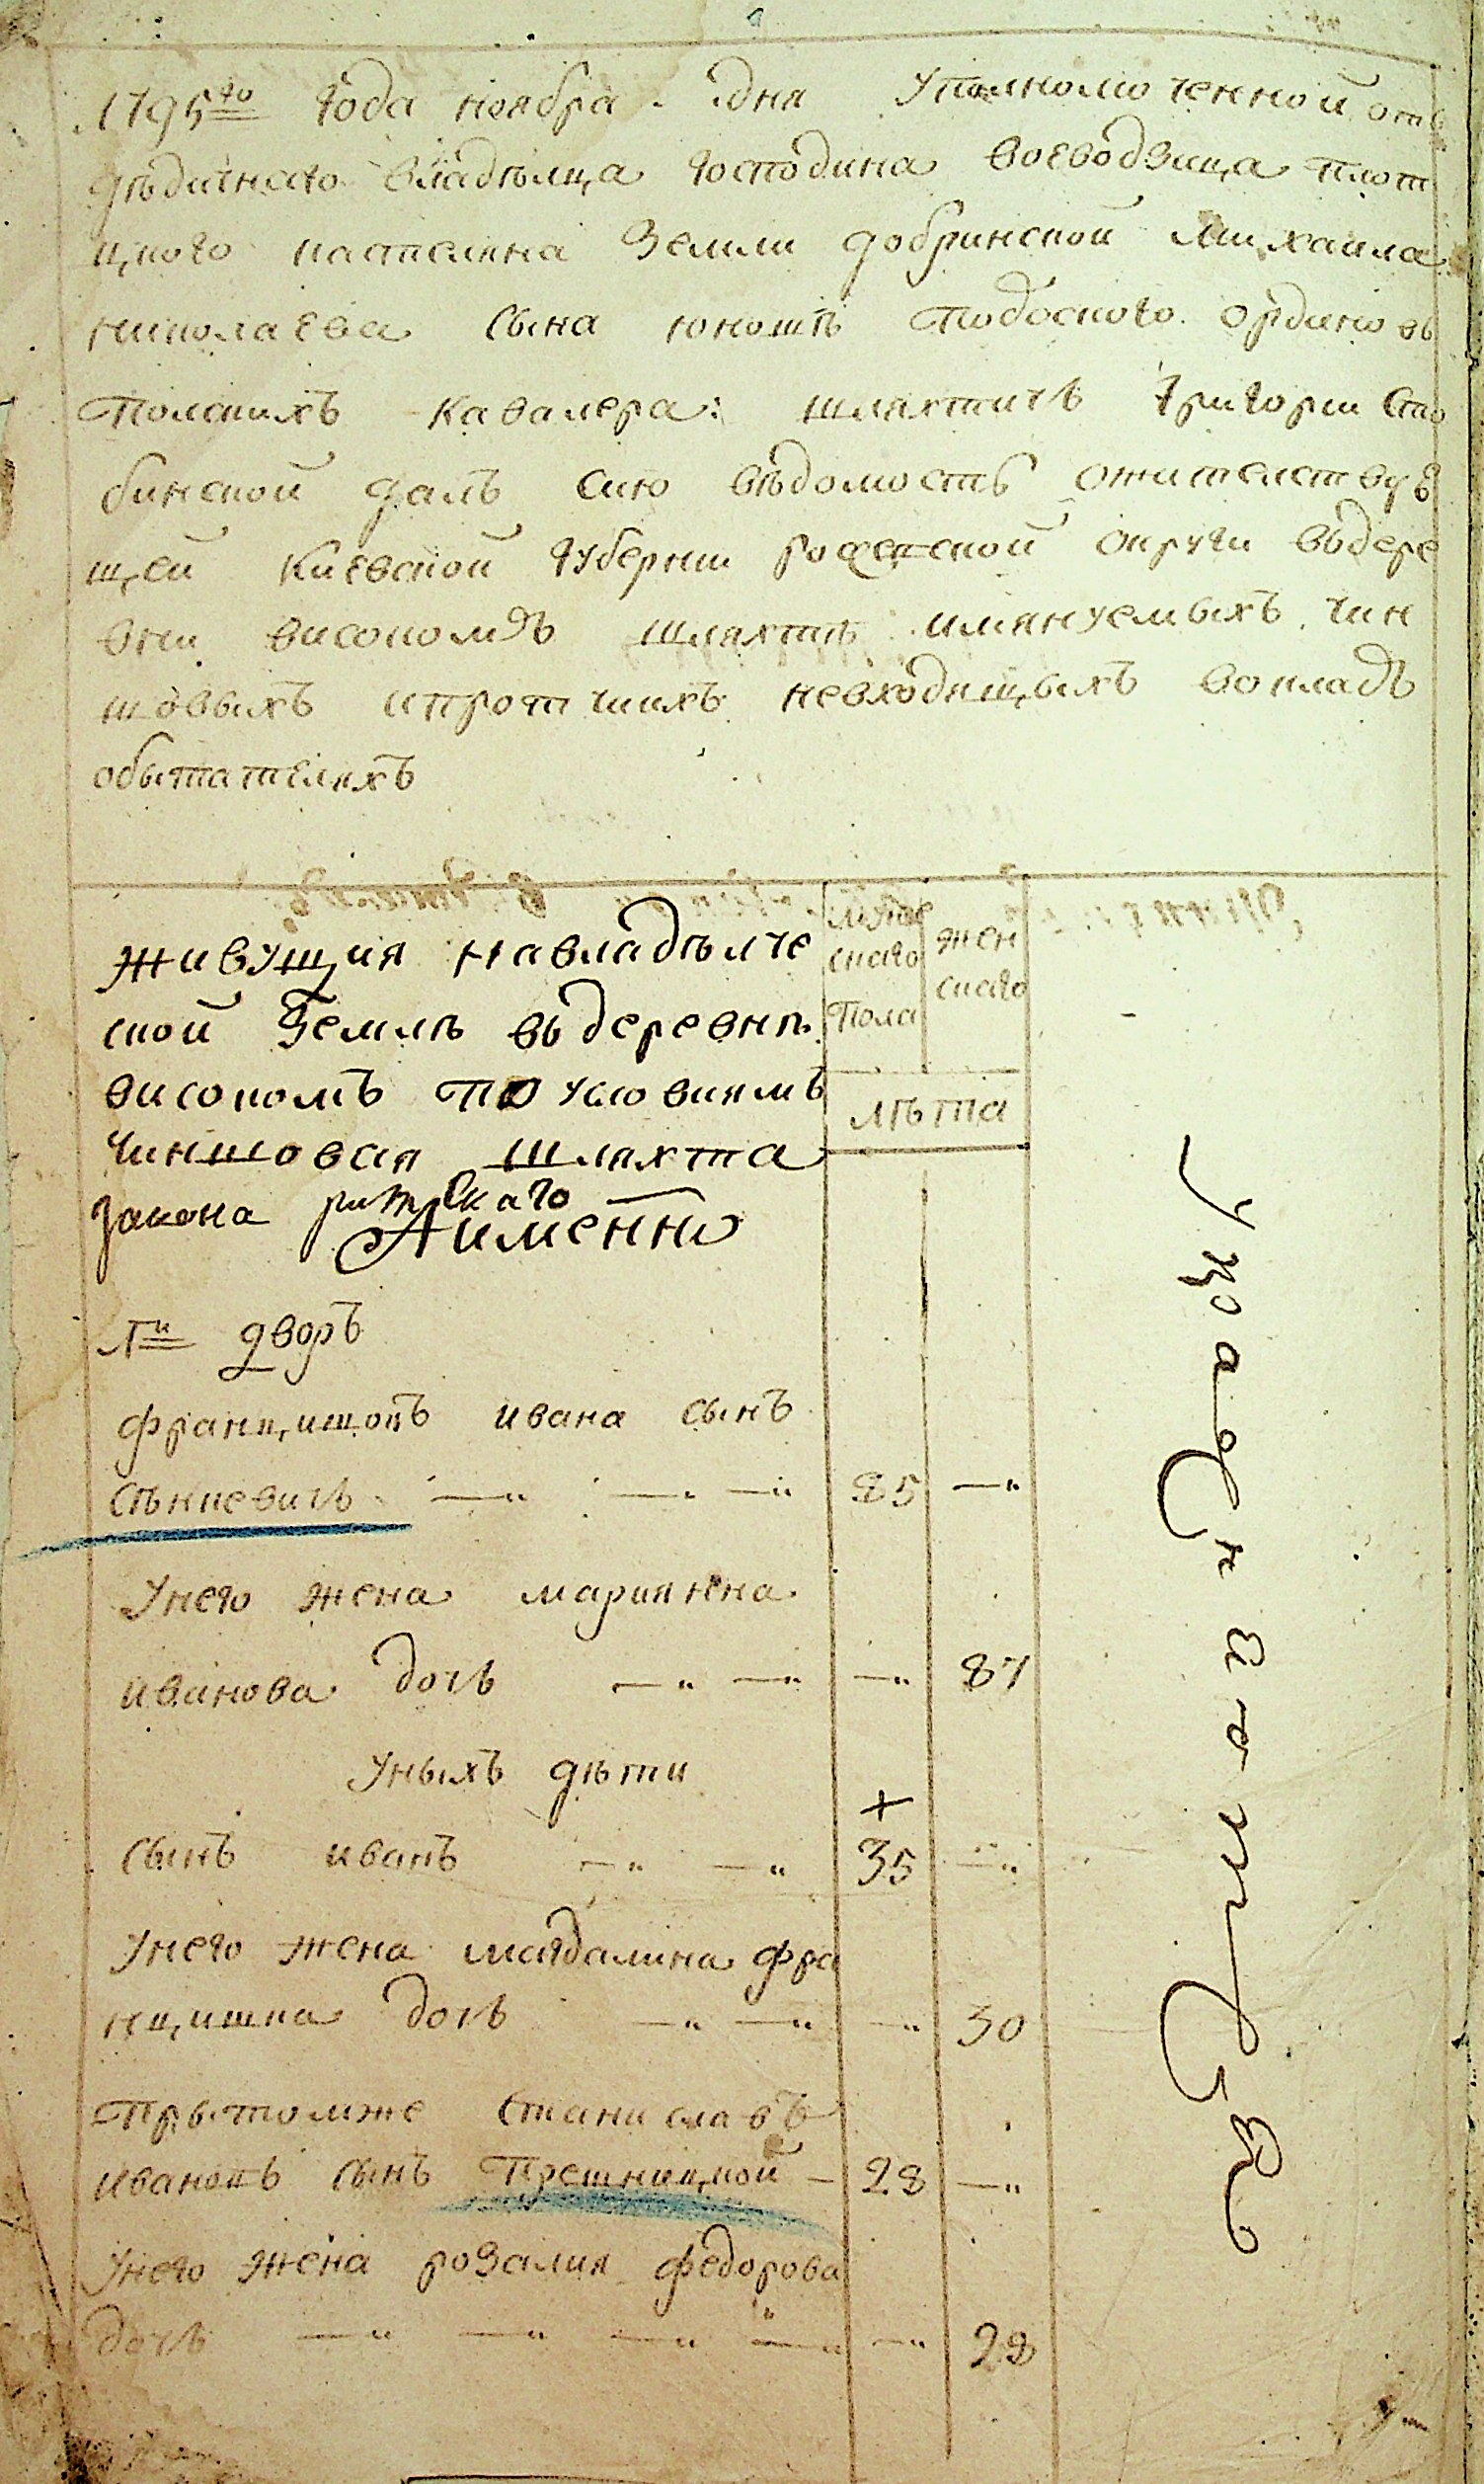 1795го года ноября дня Уполномоченной отъ
дѣдичнаго владѣльца господина воеводзица плот
цкого кастеляна Земли добринской михаила
николаева сына юношѣ подоского ординовъ
полскихъ Кавалера: шляхтичъ Григорий Сло
бинской далъ сию вѣдомость ожителствую
щей Киевской губернии округи въдере
вни високомъ шляхтѣ имянуемыхъ чин
шовыхъ ипротчихъ невходящыхъ вокладъ
обытателяхъ
живущия навладѣлче
ской Землѣ въдеревнѣ
високомъ по условиямъ
чиншовая шляхта
закона римскаго
Аименно
мужескаго пола
женскаго
лѣта
1й дворъ
францишокъ ивана сынъ
Сѣнкевичъ 85
Унего жена мариянна
иванова дочъ 87
Уныхъ дѣти
сынъ иванъ + 35
Унего жена магдалина фра
нцишка дочъ 30
Прытомже Станиславъ
ивановъ сынъ Прешницкой 28
Унего жена розалия федорова
дочъ 28